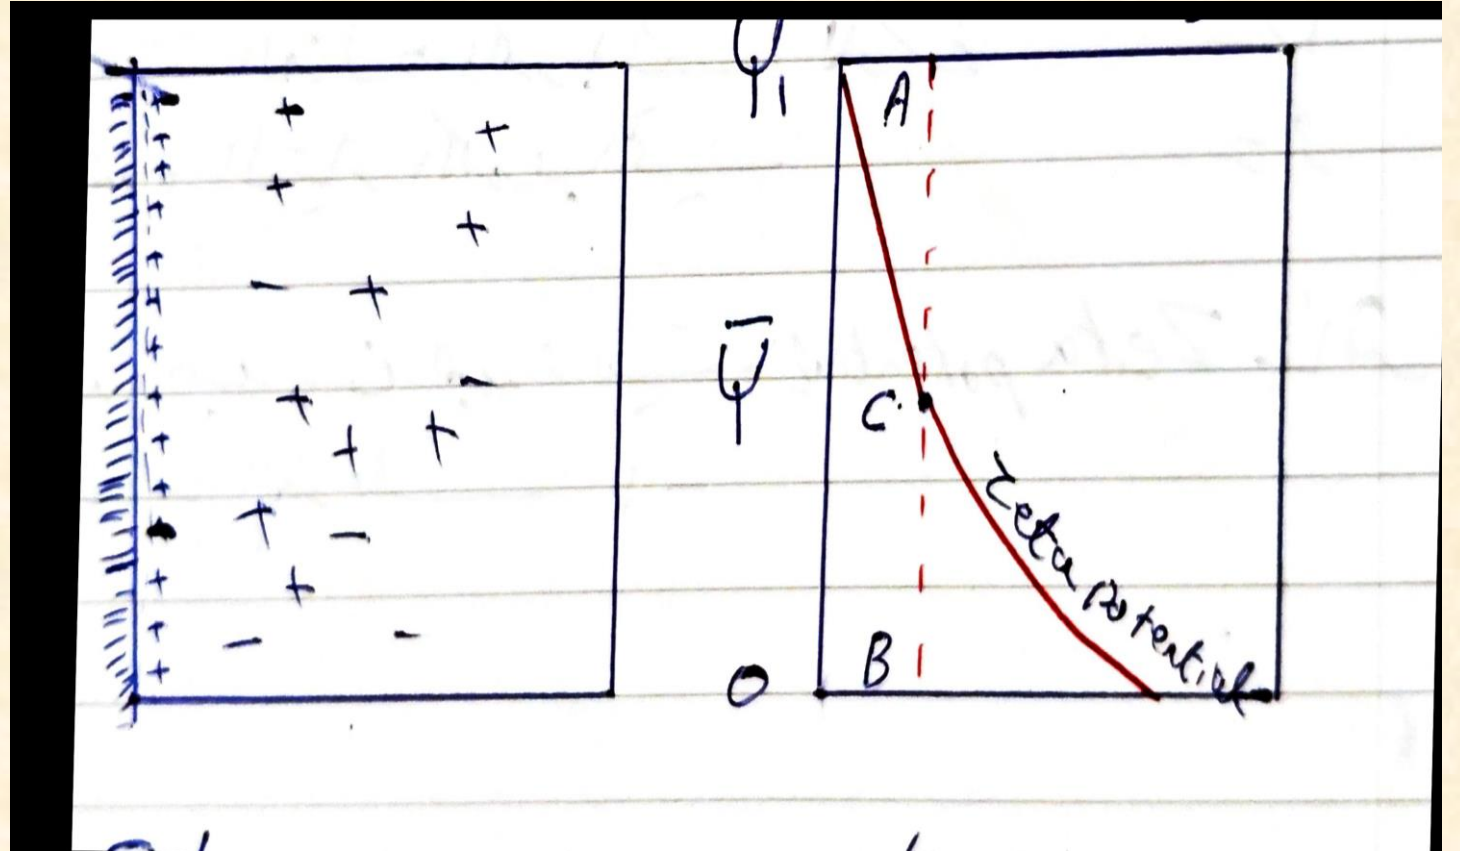 ψ1
A
ψ
C
Zeta potential
B
O